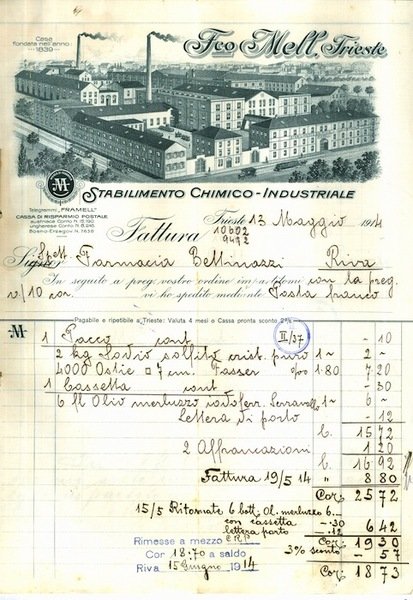 Casa
fondata nell'anno
1839
Fco Mell, Trieste
M
STABILIMENTO CHIMICO-INDUSTRIALE
Telegrammi „FRAMELL"
CASSA DI RISPARMIO POSTALE
austriaco Conto N. 15.190
ungherese Conto N. 8.246
Bosno-Erzegov. N. 7638
Trieste 13 Maggio 1914
Fattura 10602
9492
Spett. Farmacia Bettinazzi Riva
In seguito a preg. vostro ordine con la preg.
v/10 cor. vi ho spedito mediante Posta franco
Pagabile e ripetibile a Trieste: Valuta 4 mesi o Cassa pronta sconto 2%
M II/37
1 Pacco cont — 10
2 kg Sodio solfito crist. puro 1~ 2 ~
4000 Ostie □ 7 cm. Fasser %o 1·80 7 20
1 Cassetta cont — 30
6 fl Olio merluzzo iodoferr. Serravallo 1~ 6 ~
Lettera di porto — 12
C. 15 72
2 Affrancazioni 1 20
C. 16 92
Fattura 19/5 14 " 8 80
Cor. 25 72
15/5 Ritornate 6 bott. Ol. merluzzo 6.—
con cassetta —.30
lettera porto —.12 6 42
Cor. 19 30
Rimesse a mezzo C.R.P. 3% sconto — 57
Cor 18.70 a saldo
Riva 15 Giugno 1914 Cor. 18 73